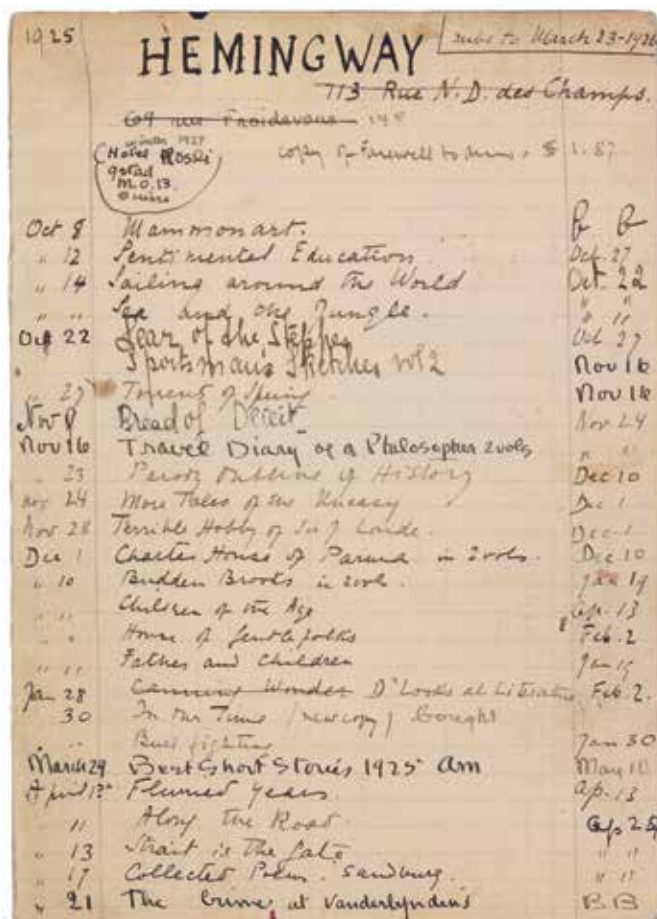 1925
HEMINGWAY
subs to March 23-1926
113 Rue N.D. des Champs.
69 rue Froidevaux
winter 1927
(Hotel Rossli
gstad
M.O.B.
Suisse
copy of Farewell to arms. $1.87
Oct 8 Mammonart. B B
" 12 Sentimental Education Oct. 27
" 14 Sailing around the World Oct. 22
" " Sea and the Jungle. " "
Oct 22 Lear of the Steppes Oct 27
Sportsman's Sketches vol 2 Nov 16
" 27 Torrents of Spring Nov 16
Nov 8 Bread of Deceit Nov 24
Nov 16 Travel Diary of a Philosopher 2 vols " "
" 23 Parody Outline of History Dec 10
Nov 24 More Tales of the Uneasy Dec 1
Nov 28 Terrible Hobby of Sir J Londe. Dec. 1
Dec 1 Charter House of Parma in 2 vols. Dec 10
" 10 Budden Brooks in 2 vols. Jan 19
" " Children of the Age Ap. 13
" " House of Gentlefolks Feb. 2
" " Father and Children Jan 19
Jan 28 Canning Wonder D° Looks at Literature Feb. 2.
30 In Our Time (new copy) bought
" Bull fighting Jan 30
March 29 Best Short Stories 1925 Am May 10
April 12 Plumed years. ap. 13
" Along the Road. Ap 25
" 13 Strait is the Gate " "
" 17 Collected Poem. Sandburg. " "
" 21 The Crime at Vanderlynden's B B